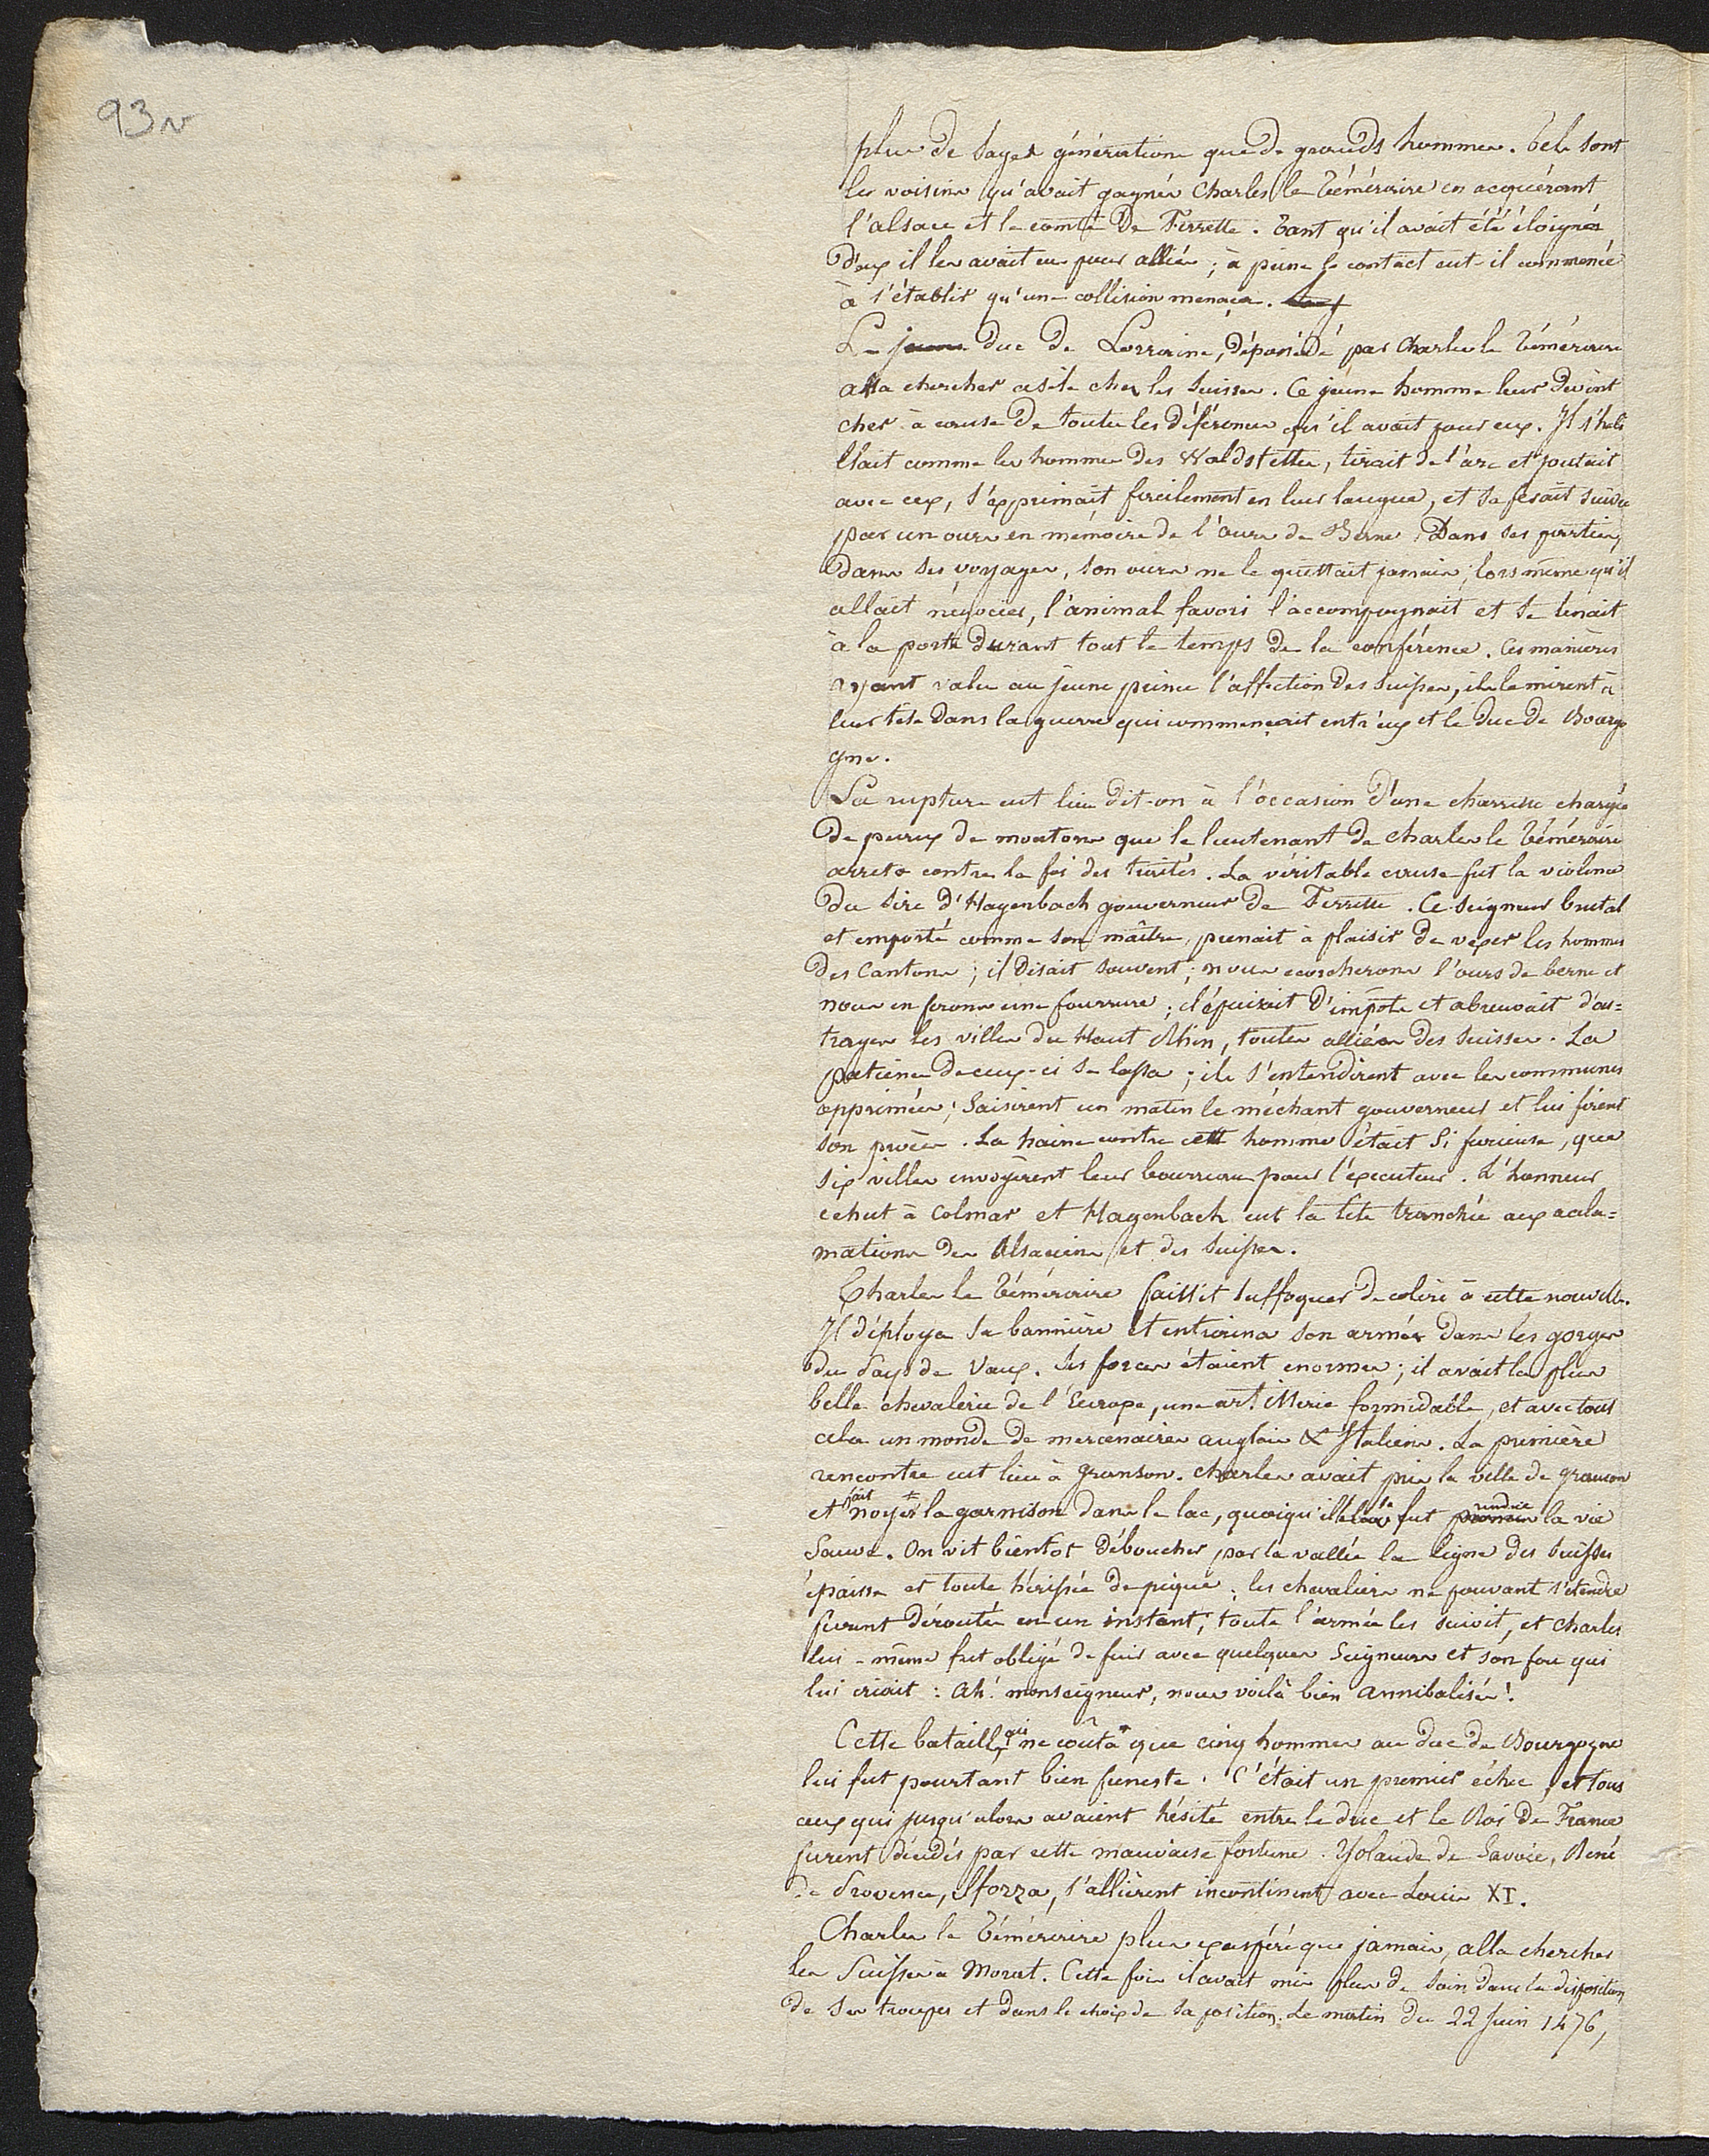 93v
plus de sages générations que de grands hommes. Tels sont
les voisins qu'avait gagnés Charles le Téméraire en acquérant
l'alsace et le comté De Ferrette. Tant qu'il avait été éloigné
D'eux il les avait eu pour alliés ; à peine le contact eut-il commencé
à s'établir qu'une collision menaça.
Le jeune duc de Lorraine, dépossédé par Charles le Téméraire
alla chercher asile chez les Suisses. Ce jeune homme leur Devint
cher à cause De toutes les déférences qu'il avait pour eux. Il s'habi
llait comme les hommes des Waldstetten, tirait de l'arc et joutait
avec eux, s'exprimait facilement en leur langue, et se fesait suivre
par un ours en mémoire de l'ours de Berne. Dans ses parties,
dans ses voyages, son ours ne le quittait jamais ; lors même qu'il
allait négocier, l'animal favori l'accompagnait et se tenait
à la porte durant tout le temps De la conférence. Ces manières
ayant valu au jeune prince l'affection Des Suisses, ils le mirent à
leur tête Dans la guerre qui commençait entr'eux et le duc De Bourgo
gne.
La rupture eut lieu dit-on à l'occasion D'une charrette chargée
De peaux de moutons que le lieutenant de Charles le Téméraire
arreta contre la foi des traités. La véritable cause fut la violence
Du Sire d'Hagenbach gouverneur De Ferrette. Ce Seigneur brutal
et emporté comme son maître, prenait à plaisir De vexer les hommes
Des Cantons ; il Disait souvent ; nous ecorcherons l'ours de berne et
nous en ferons une fourrure ; il épuisait D'impôts et abreuvait d'ou=
trages les villes du Haut Rhin, toutes alliées Des Suisses. La
patience De ceux-ci se lassa ; ils s'entendirent avec les communes
opprimées, Saisirent un matin le méchant gouverneur et lui firent
son procès. La haine contre cett homme était Si furieuse, que
six villes envoyèrent leur bourreau pour l'executeur. L'honneur
echut à Colmar et Hagenbach eut la tête tranchée aux acla=
mations des Alsaciens et des Suisses.
Charles le Téméraire faillit suffoquer De colère à cette nouvelle.
Il déploya sa bannière et entraina son armée Dans les gorges
du Pays de Vaux. Ses forces étaient enormes ; il avait la plus
belle chevalerie de l'Europe, une artillerie formidable, et avec tout
cela un monde De mercenaires anglais & Italiens. La première
rencontre eut lieu à Granson. Charles avait pris la ville de grancon
et fait noyer la garnison dans le lac, quoiqu'elle se fut rendue la vie
Sauve. On vit bientôt Déboucher par la vallée la ligne des Suisses
épaisse et toute hérissée De piques ; les chevaliers ne pouvant s'etendre
furent Déroutés en un instant, toute l'armée les suivit, et Charles
lui-même fut obligé De fuir avec quelques Seigneurs et son fou qui
lui criait : Ah! monseigneur, nous voilà bien annibalisés !
Cette bataille qui ne coûta que cinq hommes au duc de Bourgogne
lui fut pourtant bien funeste. C'était un premier échec, et tous
ceux qui jusqu'alors avaient hésité entre le duc et le Roi De France
furent décidés par cette mauvaise fortune. Yolande de Savoie, René
De Provence, Sforza, s'allièrent incontinent avec Louis XI.
Charles le Téméraire plus exaspéré que jamais, alla chercher
les Suisses à Morat. Cette fois il avait mis plus De Soin dans la disposition
de ses troupes et dans le choix de sa position. Le matin du 22 Juin 1476,